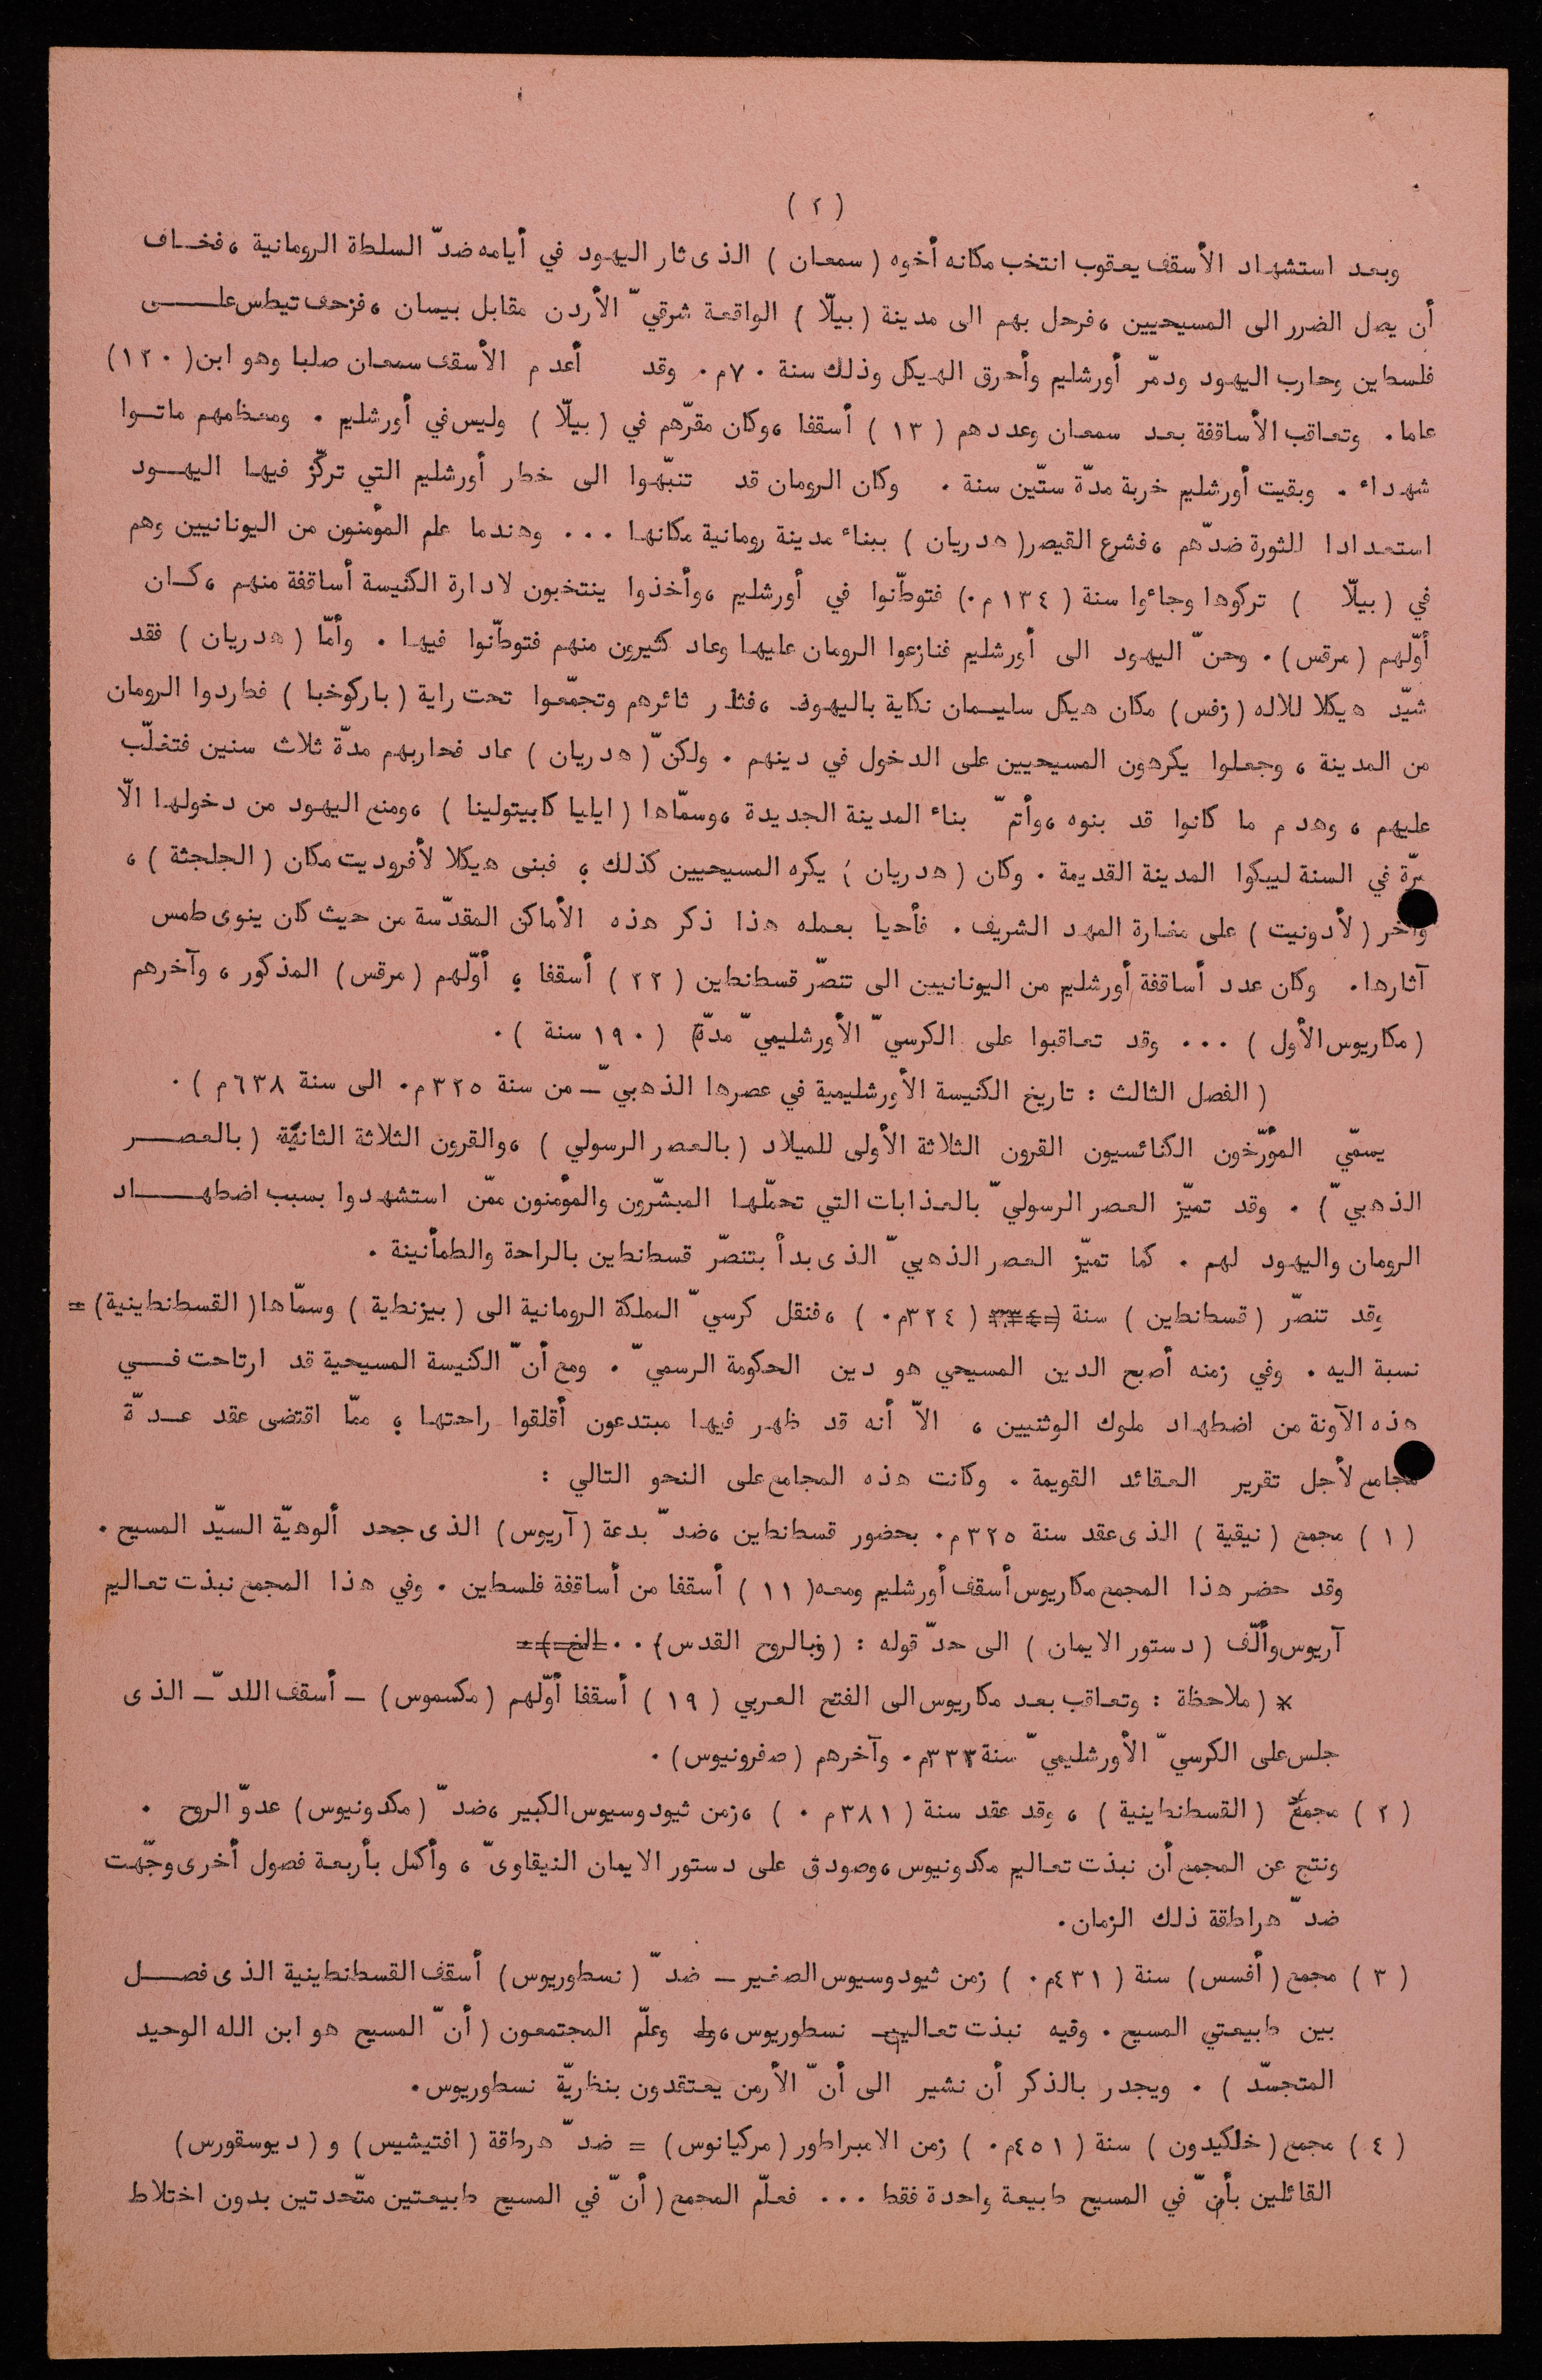 ( ٢ )
وبعد استشهاد الأسقف يعقوب انتخب مكانه أخوه ( سمعان ) الذى ثار اليهود في أيامه ضدّ السلطة الرومانية ، فخاف
أن يصل الضرر الى المسيحيين ، فرحل بهم الى مدينة ( بيلّا ) الواقعة شرقيّ الأردن مقابل بيسان ، فزحف تيطس على
فلسطين وحارب اليهود ودمّر أورشليم وأحرق الهيكل وذلك سنة ٧٠م. وقد أعدم الأسقف سمعان صلبا وهو ابن ( ١٢٠ )
عاما. وتعاقب الأساقفة بعد سمعان وعددهم ( ١٣ ) أسقفا ، وكان مقرّهم في ( بيلّا ) وليس في أورشليم . ومعظمهم ماتوا
شهداء . وبقيت أورشليم خربة مدّة ستّين سنة . وكان الرومان قد تنبّهوا الى خطر أورشليم التي تركّز فيها اليهود
استعدادا للثورة ضدّهم ، فشرع القيصر ( هدريان ) ببناء مدينة رومانية مكانها ... وعندما علم المؤمنون من اليونانيين وهم
في ( بيلّا ) تركوها وجاءوا سنة ( ١٣٤ م٠) فتوطّنوا في أورشليم ، وأخذوا ينتخبون لادارة الكنيسة أساقفة منهم ، كان
أوّلهم ( مرقس ) . وحنّ اليهود الى أورشليم فنازعوا الرومان عليها وعاد كثيرون منهم فتوطّنوا فيها . وأمّا ( هدريان ) فقد
شيّد هيكلا للاله ( زفس ) مكان هيكل سليمان نكاية باليهود ، فثار ثائرهم وتجمّعوا تحت راية ( باركوخبا ) فطاردوا الرومان
من المدينة ، وجعلوا يكرهون المسيحيين على الدخول في دينهم . ولكنّ ( هدريان ) عاد فحاربهم مدّة ثلاث سنين فتغلّب
عليهم ، وهدم ما كانوا قد بنوه ، وأتمّ بناء المدينة الجديدة ، وسمّاها ( ايليا كابيتولينا ) ، ومنع اليهود من دخولها الّا
مرّة في السنة ليبكوا المدينة القديمة . وكان ( هدريان ) يكره المسيحيين كذلك ؛ فبنى هيكلا لأفروديت مكان ( الجلجثة ) ،
وآخر ( لأدونيت ) على مغارة المهد الشريف . فأحيا بعمله هذا ذكر هذه الأماكن المقدّسة من حيث كان ينوى طمس
آثارها. وكان عدد أساقفة أورشليم من اليونانيين الى تنصّر قسطنطين ( ٢٢ ) أسقفا ؛ أوّلهم ( مرقس ) المذكور ، وآخرهم
( مكاريوس الأول ) ... وقد تعاقبوا على الكرسيّ الأورشليميّ مدّة ( ١٩٠ سنة ) .
( الفصل الثالث : تاريخ الكنيسة الأورشليمية في عصرها الذهبيّ ـ من سنة ٣٢٥م. الى سنة ٦٣٨م ) .
يسمّي المؤرّخون الكنائسيون القرون الثلاثة الأولى للميلاد ( بالعصر الرسولي ) ، والقرون الثلاثة الثانيّة ( بالعصر
الذهبيّ ) . وقد تميّز العصر الرسوليّ بالعذابات التي تحمّلها المبشّرون والمؤمنون ممّن استشهدوا بسبب اضطهاد
الرومان واليهود لهم . كما تميّز العصر الذهبيّ الذى بدأ بتنصّر قسطنطين بالراحة والطمأنينة .
وقد تنصّر ( قسطنطين ) سنة ( ٣٢٤م٠ ) ، فنقل كرسيّ المملكة الرومانية الى ( بيزنطية ) وسمّاها ( القسطنطينية ) =
نسبة اليه . وفي زمنه أصبح الدين المسيحي هو دين الحكومة الرسميّ . ومع أنّ الكنيسة المسيحية قد ارتاحت في
هذه الآونة من اضطهاد ملوك الوثنيين ، الاّ أنه قد ظهر فيها مبتدعون أقلقوا راحتها ؛ ممّا اقتضى عقد عدّة
مجامع لأجل تقرير العقائد القويمة . وكانت هذه المجامع على النحو التالي :
( ١ ) مجمع ( نيقية ) الذى عقد سنة ٣٢٥م. بحضور قسطنطين ، ضدّ بدعة ( آريوس ) الذى جحد ألوهيّة السيّد المسيح .
وقد حضر هذا المجمع مكاريوس أسقف أورشليم ومعه ( ١١ ) أسقفا من أساقفة فلسطين . وفي هذا المجمع نبذت تعاليم
آريوس وألّف ( دستور الايمان ) الى حدّ قوله : ( وبالروح القدس ) . . الخ )
* ( ملاحظة : وتعاقب بعد مكاريوس الى الفتح العربي ( ١٩ ) أسقفا أوّلهم ( مكسموس ) ـ أسقف اللدّ ـ الذى
جلس على الكرسيّ الأورشليميّ سنة ٣٣٣م. وآخرهم ( صفرونيوس ) .
( ٢ ) مجمع ( القسطنطينية ) ، وقد عقد سنة ( ٣٨١م ٠ ) ، زمن ثيودوسيوس الكبير ، ضدّ ( مكدونيوس ) عدوّ الروح .
ونتج عن المجمع أن نبذت تعاليم مكدونيوس ، وصودق على دستور الايمان النيقاوىّ ، وأكمل بأربعة فصول أخرى وجّهت
ضدّ هراطقة ذلك الزمان.
( ٣ ) مجمع ( أفسس ) سنة ( ٤٣١م٠ ) زمن ثيودوسيوس الصغير ـ ضدّ ( نسطوريوس ) أسقف القسطنطينية الذى فصل
بين طبيعتي المسيح . وفيه نبذت تعاليم نسطوريوس ، وعلّم المجتمعون ( أنّ المسيح هو ابن الله الوحيد
المتجسّد ) . ويجدر بالذكر أن نشير الى أنّ الأرمن يعتقدون بنظريّة نسطوريوس.
( ٤ ) مجمع ( خلكيدون ) سنة ( ٤٥١م٠ ) زمن الامبراطور ( مركيانوس ) = ضدّ هرطقة ( افتيشيس ) و ( ديوسقورس )
القائلين بأنّ في المسيح طبيعة واحدة فقط ... فعلّم المجمع ( أنّ في المسيح طبيعتين متّحدتين بدون اختلاط